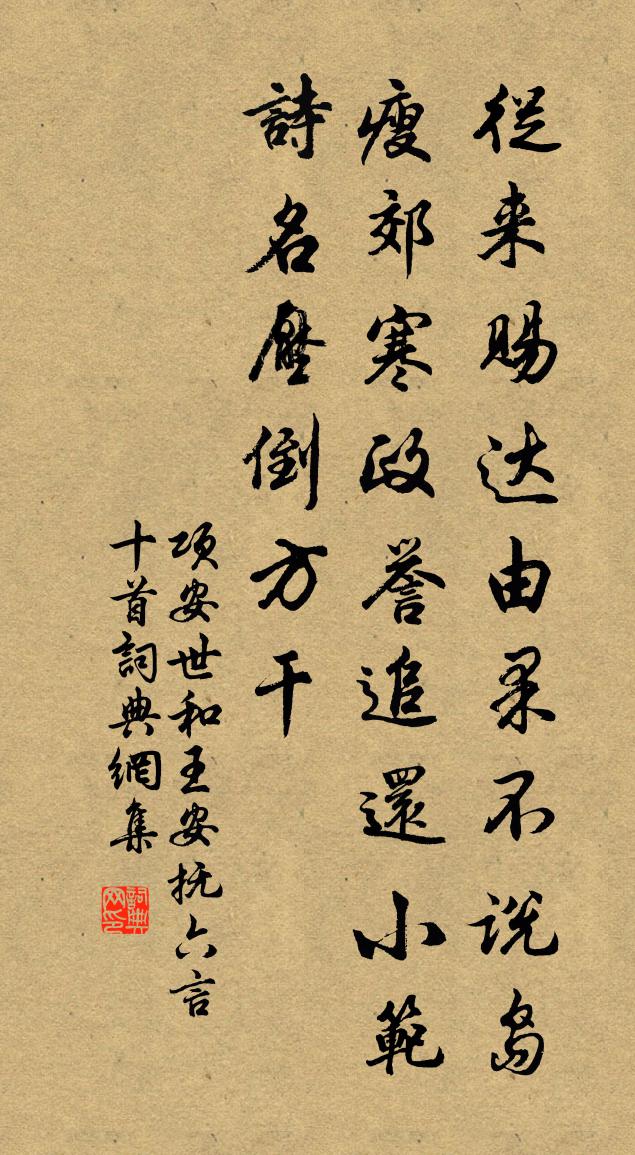 從来賜达由果不说島
瘦郊寒政誉追還小範
詩名壓倒方干
项安世和王安抚六言
十首詞典網集
詞典
网印